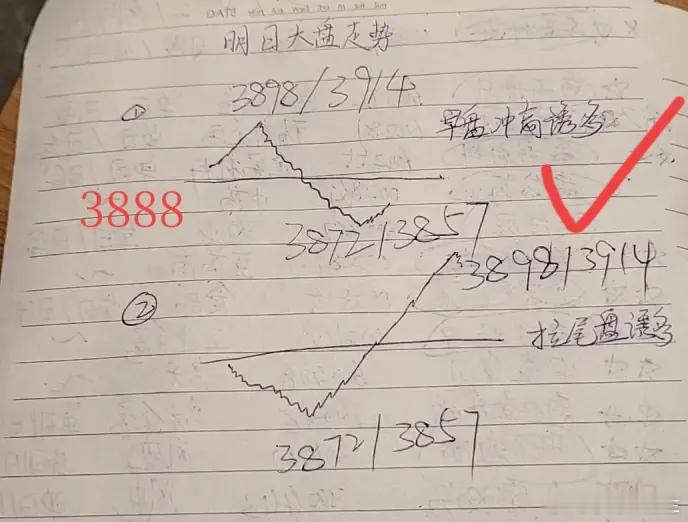 明日大盘走势
3898/3914
①
早盘冲高诱多
3888
3872/3857
3898/3914
②
拉尾盘诱多
3872/3857